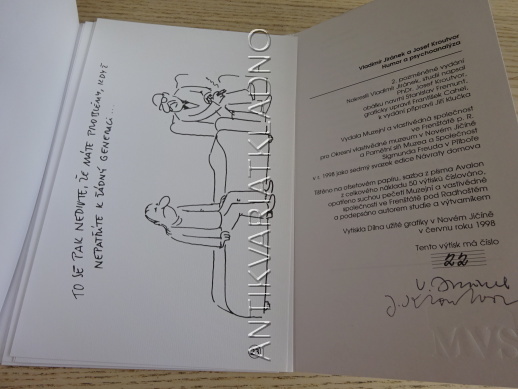 TO SE PAK NEDIVTE, ŽE MÁTE PROBLÉMY, KDYŽ
NEPATŘÍTE K ŽÁDNÝ GENERACI...
ANTIKVARIATKLADNO
Vladimír Jiránek a Josef Kroutvor
Humor a psychoanalýza
2. pozměněné vydání
Nakreslil Vladimír Jiránek, studii napsal
PhDr. Josef Kroutvor,
obálku navrhl Stanislav Fremunt,
graficky upravil František Cahel,
k vydání připravil Jiří Klučka
Vydala Muzejní a vlastivědná společnost
ve Frenštátě p. R.
pro Okresní vlastivědné muzeum v Novém Jičíně
a Památník síň Muzea a Společnosti
Sigmunda Freuda v Příboře
v r. 1998 jako sedmý svazek edice Návraty domova
Tištěno na ofsetovém papíru, sazba z písma Avalon
z celkového nákladu 50 výtisků číslováno,
opatřeno suchou pečetí Muzejní a vlastivědné
společnosti ve Frenštátě pod Radhoštěm
a podepsáno autorem studie a výtvarníkem
Vytiskla Dílna užité grafiky v Novém Jičíně
v červnu roku 1998
Tento výtisk má číslo
22
MVS